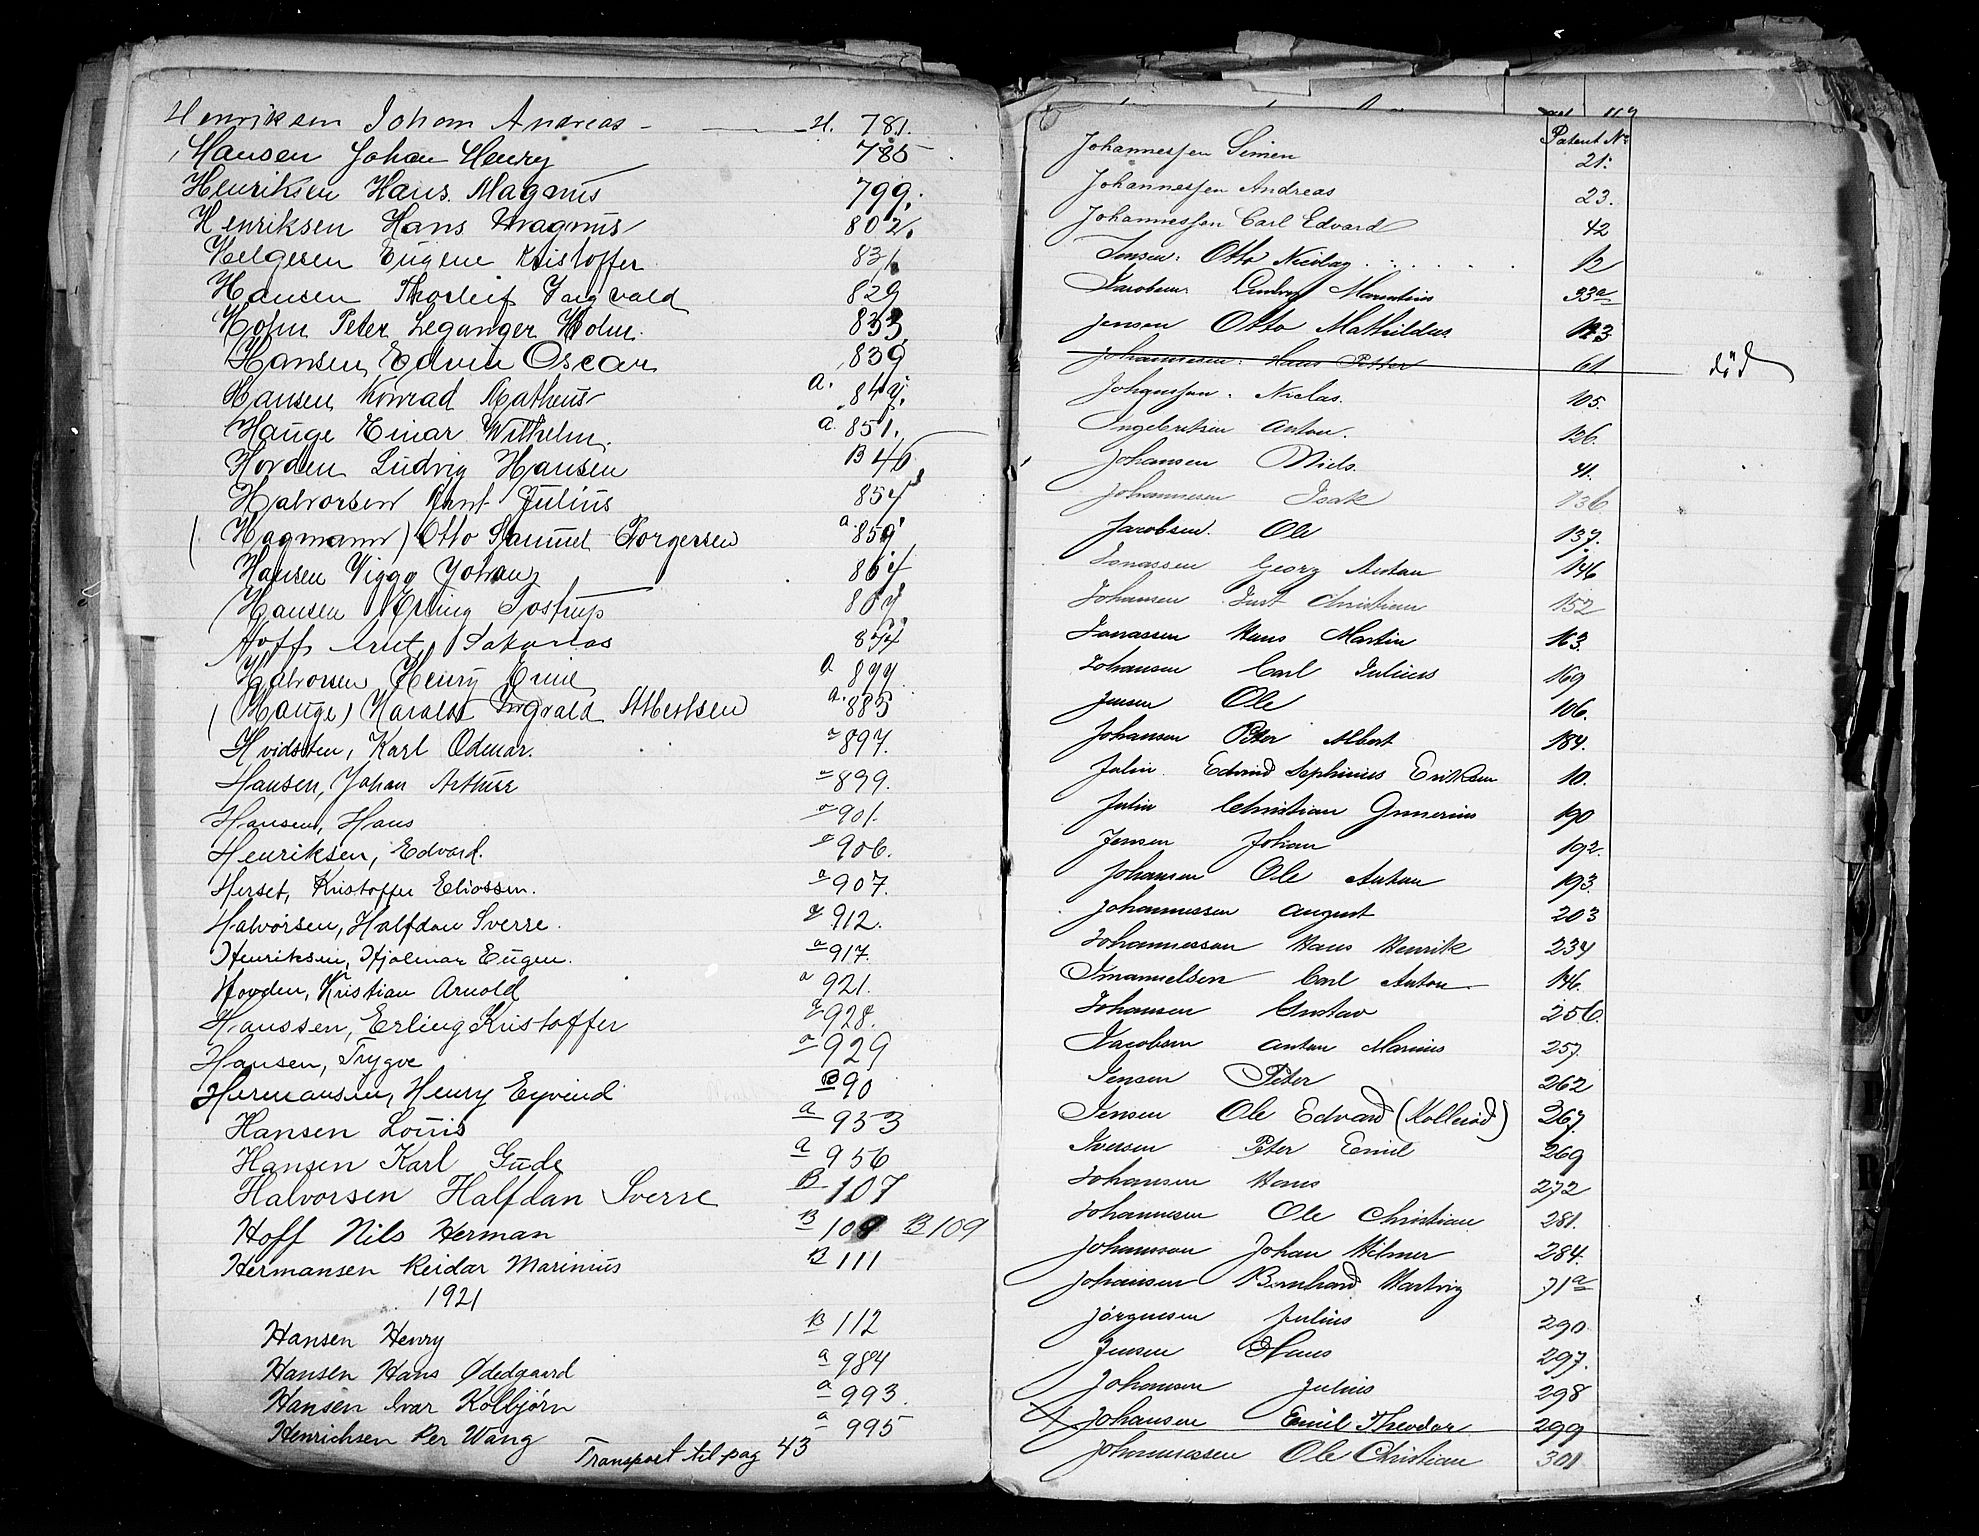 Henriksen Johan Andreas - 781.
Hansen Johan Henry 785
Henriksen Hans. Magnus 799.
Henriksen Hans Magnus 802.
Helgesen Eugene Kristoffer 831
Hansen Thorleif Yngvald 829
Holm Peter Leganger Holm. 833
Hansen Edvin Oscar 839
Hansen Konrad Matheus a. 849.
Hauge Einar Wilhelm. a. 851.
Hovden Ludvig Hansen B 46
Halvorsen Arnt Julius 854
(Hagmann) Otto Samuel Torgersen a. 859
Hansen Viggo Johan 864
(Hansen Erling Tostrup
Hoff Sakarias 874
Halvorsen Henry Emil a 899
(Hauge) Harald Ingvald Albertsen a. 885
Hvidsten, Karl Odmar. a 897.
Hansen, Johan Arthur a 899.
Hansen, Hans a 901.
Henriksen, Edvard. a 906.
Herset, Kristoffer Eliassen. a 907.
Halvorsen, Halfdan Sverre. a 912.
Henriksen, Hjalmar Eugen. a 917.
Hovden, Kristian Arnold a 921.
Hanssen, Erling Kristoffer a 928.
Hansen, Trygve a 929
Hermansen, Henry Eyvind B 90
Hansen Louis a 953
Hansen Karl Gude a 956
Halvorsen Halfdan Sverre B 107
Hoff Nils Herman B 108 B 109
Hermansen Reidar Marinius B 111
1921
Hansen Henry B 112
Hansen Hans Ødedgaard a 984
Hansen Ivar Kolbjørn a 993.
Henrichsen Per Wang a 995
Transport til pag 43
Patent No
Johannessen Simen 21.
Johannessen Andreas 23.
Johannessen Carl Edvard 42
Jensen. Otto Nicolay 12
Jacobsen Ludvig Marentius 33a
Jensen Otto Mathildus. 123
Johannesen. Hans Petter 61 död
Johanssen. Niclas. 105.
Ingebritsen Anton. 126.
Johansen Niels. 41.
Johannesen Isak 136
Jacobsen. Ole 137.
Jonassen Georg Anton 146
Johansen Just Christian 152
Jonassen Hans Martin 163.
Johansen Carl Julius 169
Jensen Ole 106.
Johansen Peter Albert 184.
Julin. Edvind Sephinius Eriksen 10.
Julin Christian Gunerius 190
Jensen Johan 192.
Johansen Ole Anton 193.
Johannessen August 203
Johannessen Hans Henrik 234
Imanuelsen Carl Anton 146.
Johansen Gustav 256.
Jacobsen Anton Marius 257.
Jensen Peter 262
Jensen Ole Edvard (Kolleröd) 267.
Iversen Peter Emil 269
Johansen Hans 272
Johannesen Ole Christian 281.
Johannson Johan Hilmer 284.
Johansen Bernhard Hartvig 71a
Jörgensen Julius 290
Jensen Hans 297.
Johansen Julius 298
Johansen Emil Theodor 299
Johannessen Ole Christian 301